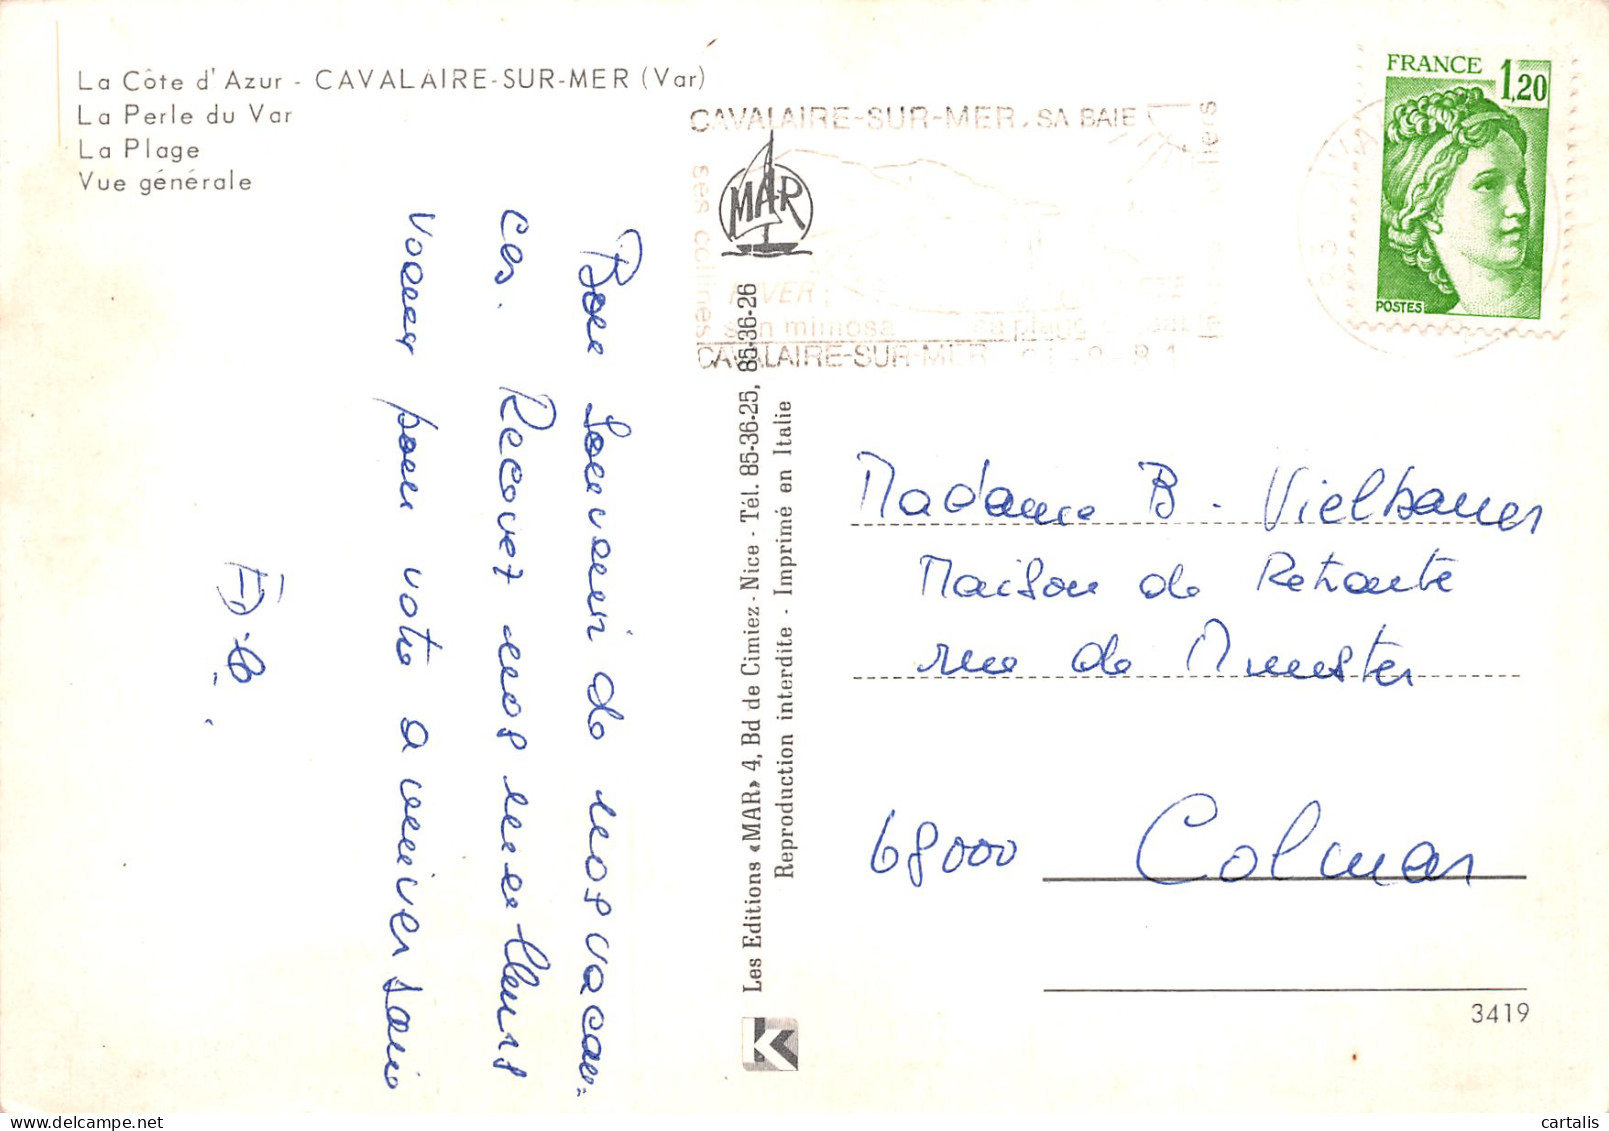 La Côte d'Azur - CAVALAIRE-SUR-MER (Var)
La Perle du Var
La Plage
Vue générale
Bon Souvenir de nos vacan-
ces. Recevez nos meilleurs
voeux pour votre anniversaire
CAVALAIRE-SUR-MER, SA BAIE
ses collines
HIVER:
son mimosa sa plage
CAVALAIRE-SUR-MER
MAR
FRANCE 1,20
POSTES
Les Editions «MAR» 4, Bd de Cimiez - Nice - Tél. 85-36-25, 85-36-26
Reproduction interdite - Imprimé en Italie
K
Madame B. Vielhauer
Maison de Retraite
rue de Munster
68000 Colmar
3419
cartalis